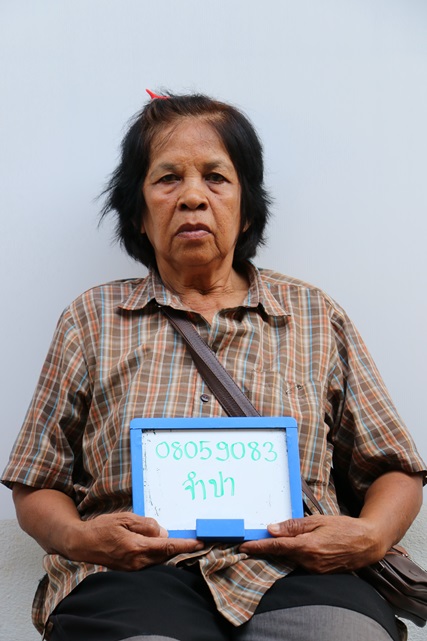 08059083
จำปา